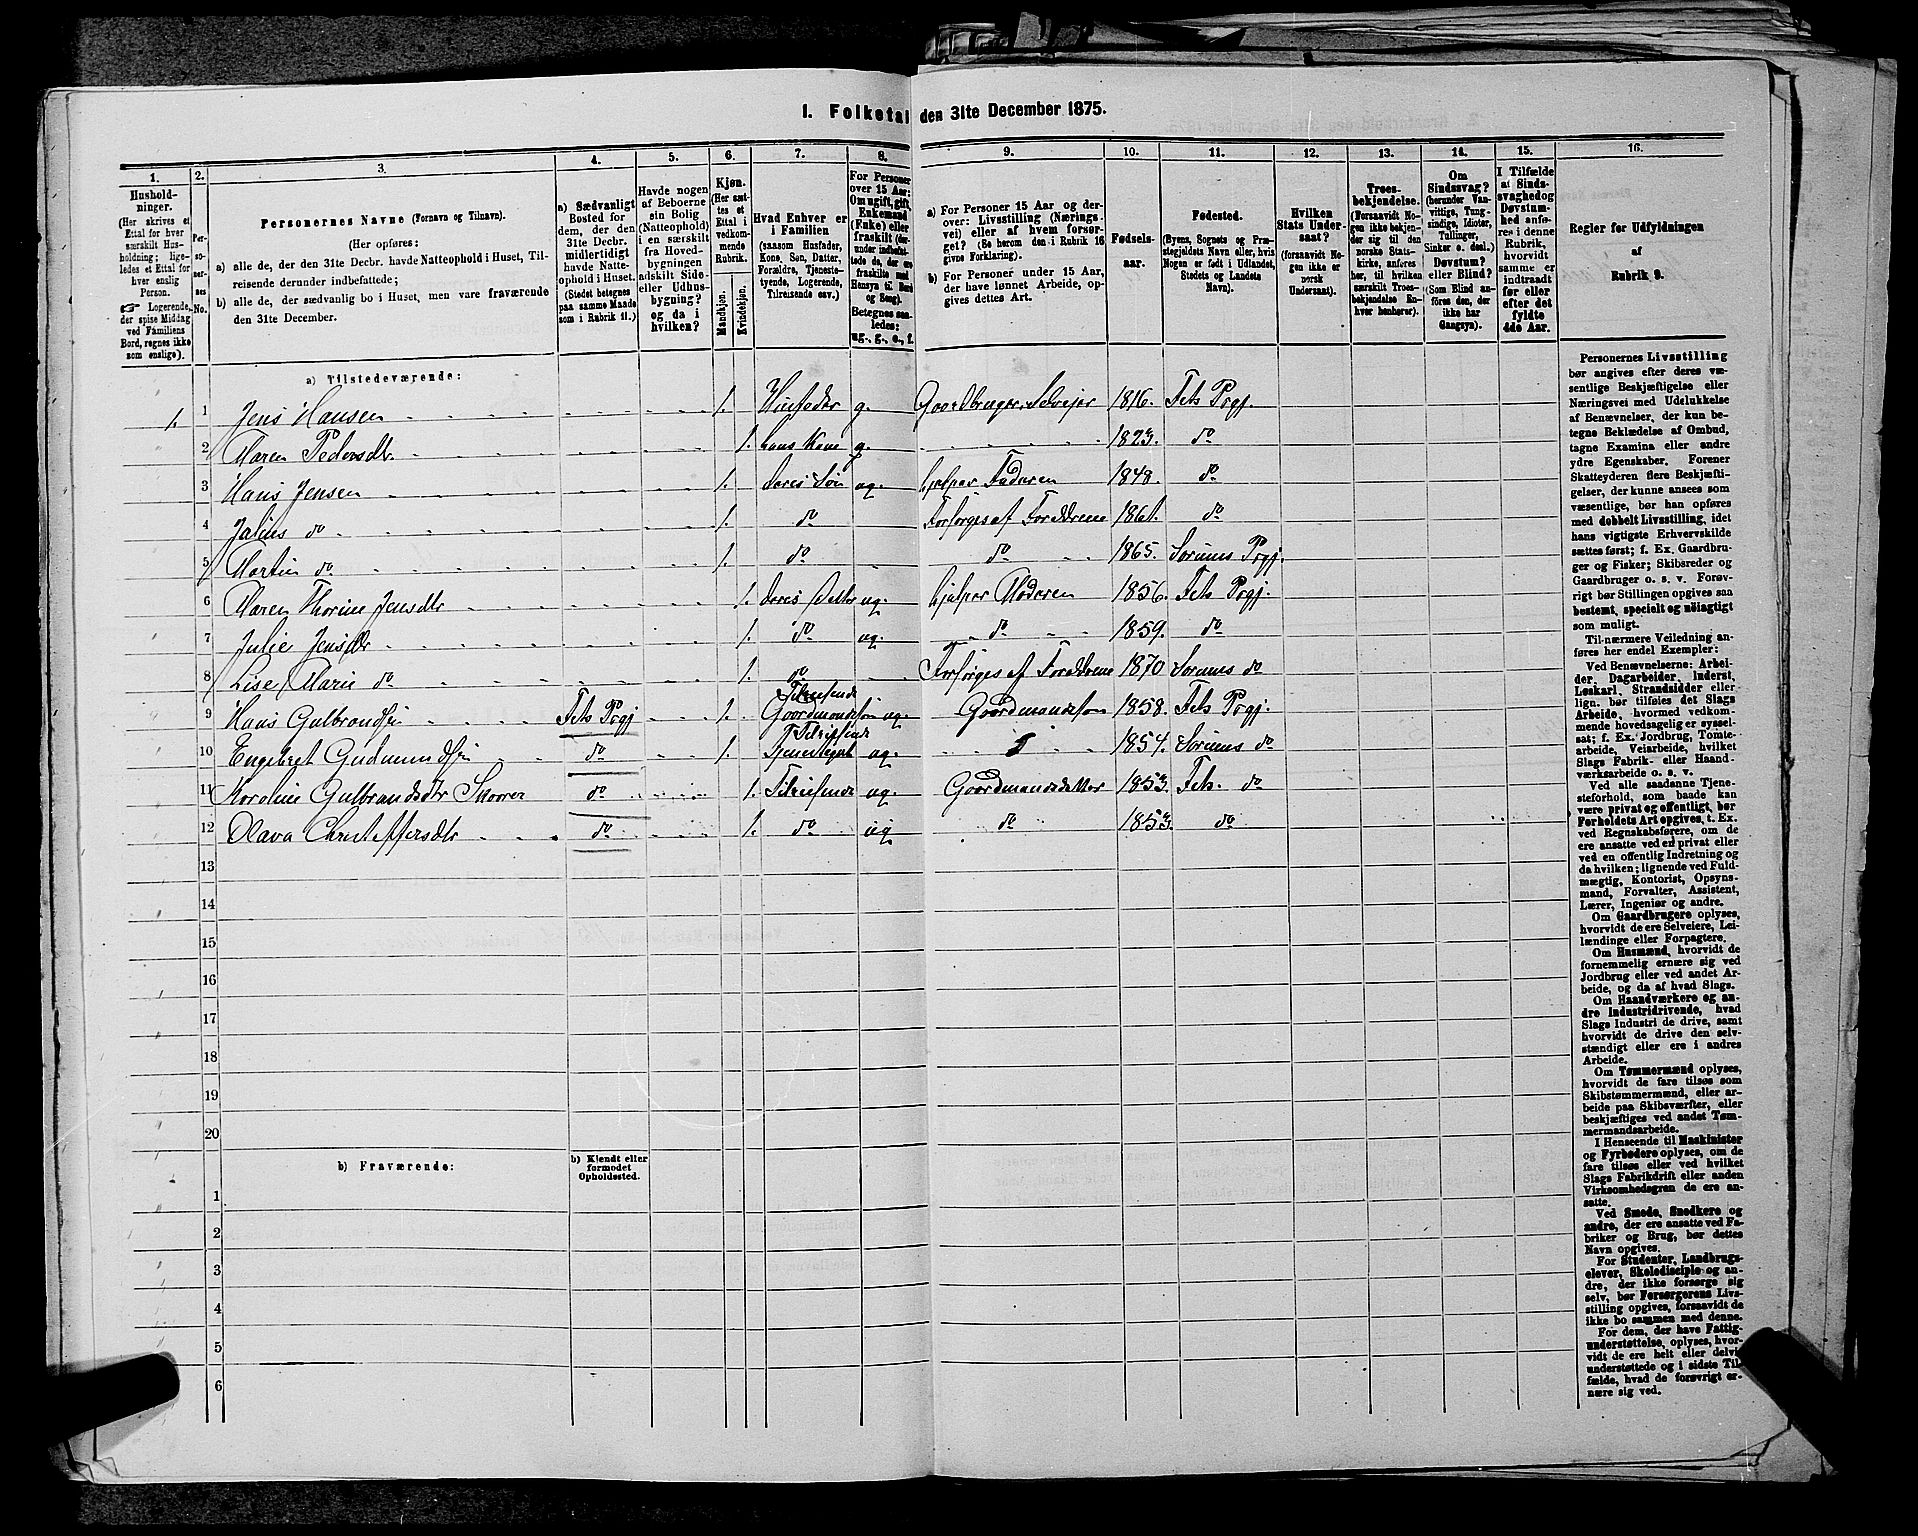 I. Folketal den 31te December 1875.
1. 2. 3. 4. 5. 6. 7. 8. 9. 10. 11. 12. 13. 14. 15. 16.
Hushold-
ninger.
(Her skrives et
Ettal for hver
særskilt Hus-
holdning; lige-
ledes et Ettal for
hver enslig
Person.
☞ Logerende,
der spise Middag
ved Familiens
Bord, regnes ikke
som enslige).
Per-
so-
ner-
nes
No.
Personernes Navne (Fornavn og Tilnavn).
(Her opføres:
a) alle de, der den 31te Decbr. havde Natteophold i Huset, Til-
reisende derunder indbefattede;
b) alle de, der sædvanlig bo i Huset, men vare fraværende
den 31te December.
a) Sædvanligt
Bosted for
dem, der den
31te Decbr.
midlertidigt
havde Natte-
ophold i Huset.
(Stedet betegnes
paa samme Maade
som i Rubrik 11.)
Havde nogen
af Beboerne
sin Bolig
(Natteophold)
i en særskilt
fra Hoved-
bygningen
adskilt Side-
eller Udhus-
bygning?
og da i
hvilken?
Kjøn.
(Her sæt-
tes et
Ettal i
vedkom-
mende
Rubrik.
Mandkjøn.
Kvindekjøn.
Hvad Enhver er
i Familien
(saasom Husfader,
Kone, Søn, Datter,
Forældre, Tjeneste-
tyende, Logerende,
Tilreisende osv.)
For Personer
over 15 Aar:
Om ugift, gift,
Enkemand
(Enke) eller
fraskilt (der-
under indbefat-
tede de, der ere
fraskilte med
Hensyn til Bord
og Seng).
Betegnes saa-
ledes:
ug., g., e., f.
a) For Personer 15 Aar og der-
over: Livsstilling (Nærings-
vei) eller af hvem forsør-
get? (Se herom den i Rubrik 16
givne Forklaring).
b) For Personer under 15 Aar,
der have lønnet Arbeide, op-
gives dettes Art.
Fødsels-
aar.
Fødested.
(Byens, Sognets og Præ-
stegjeldets Navn eller, hvis
Nogen er født i Udlandet,
Stedets og Landets
Navn).
Hvilken
Stats Under-
saat?
(forsaavidt No-
gen ikke er
norsk
Undersaat).
Troes-
bekjendelse.
(Forsaavidt No-
gen ikke bekjen-
der sig til den
norske Stats-
kirke, anføres
her, til hvilken
særskilt Troes-
bekjendelse En-
hver henhører).
Om
Sindssvag?
(herunder Van-
vittige, Tung-
sindige, Idioter,
Tullinger,
Sinker o. desl.)
Døvstum?
eller Blind?
(Som Blind an-
føres den, der
ikke har
Gangsyn).
I Tilfælde
af Sinds-
svaghed og
Døvstum-
hed anfø-
res i denne
Rubrik,
hvorvidt
samme er
indtraadt
før eller
efter det
fyldte
4de Aar.
Regler for Udfyldningen
af
Rubrik 9.
a) Tilstedeværende:
1. 1 Jens Hansen 1. Husfader g. Gaardbruger, Selveier 1816. Fets Prgj.
2 Maren Pedersdtr. 1. hans Kone g. 1823. do
3 Hans Jensen 1. deres Søn ug. hjelper Faderen 1848. do
4 Julius do 1. do Forsørges af Forældrene 1861. do
5 Martin do 1. do do 1865. Sørums Prgj.
6 Maren Thorine Jensdtr 1. deres Datter ug. hjelper Moderen 1856. Fets Prgj.
7 Julie Jensdtr 1. do ug. do 1859. do
8 Lise Marie do 1. do Forsørges af Forældrene 1870 Sørums do
9 Hans Gulbrandsen Fets Prgj 1. Tilreisende Gaardmandssøn ug. Gaardmandssøn 1858. Fets Prgj.
10 Engebret Gudmundsen do 1. Tilreisende ug. 1854. Sørums do
11 Karoline Gulbrandsdtr do 1. Tilreisende ug. Gaardmandsdatter 1853. Fets. do
12 Olava Christoffersdtr do 1. do ug do 1853. do
13
14
15
16
17
18
19
20
b) Fraværende:
b) Kjendt eller
formodet
Opholdssted.
1
2
3
4
5
6
Personernes Livsstilling
bør angives efter deres væ-
sentlige Beskjæftigelse eller
Næringsvei med Udelukkelse
af Benævnelser, der kun be-
tegne Beklædelse af Ombud,
tagne Examina eller andre
ydre Egenskaber. Forener
Skatteyderen flere Beskjæfti-
gelser, der kunne ansees som
væsentlige, bør han opføres
med dobbelt Livsstilling, idet
hans vigtigste Erhvervskilde
sættes først; f. Ex. Gaardbru-
ger og Fisker; Skibsreder og
Gaardbruger o. s. v. Forøv-
rigt bør Stillingen opgives saa
bestemt, specielt og nöiagtigt
som muligt.
Til nærmere Veiledning an-
føres her endel Exempler:
Ved Benævnelserne: Arbei-
der, Dagarbeider, Inderst,
Løskarl, Strandsidder eller
lign. bør tilføies det Slags
Arbeide, hvormed vedkom-
mende hovedsagelig er syssel-
sat; f. Ex. Jordbrug, Tomte-
arbeide, Veiarbeide, hvilket
Slags Fabrik- eller Haand-
værksarbeide o. s. v.
Ved alle saadanne Tjene-
steforhold, som baade kan
være privat og offentligt, bør
Forholdets Art opgives, t. Ex.
ved Regnskabsførere, om de
ere ansatte ved en privat eller
ved en offentlig Indretning og
da hvilken; lignende ved Fuld-
mægtig, Kontorist, Opsyns-
mand, Forvalter, Assistent,
Lærer, Ingeniør og andre.
Om Gaardbrugere oplyses,
hvorvidt de ere Selveiere, Lei-
lændinge eller Forpagtere.
Om Husmænd, hvorvidt de
fornemmelig ernære sig ved
Jordbrug eller ved andet Ar-
beide, og da af hvad Slags.
Om Haandværkere og an-
dre Industridrivende, hvad
Slags Industri de drive, samt
hvorvidt de drive den selv-
stændigt eller ere i andres
Arbeide.
Om Tømmermænd oplyses,
hvorvidt de fare tilsøs som
Skibstømmermænd, eller ar-
beide paa Skibsværfter, eller
beskjæftiges ved andet Tøm-
mermandsarbeide.
I Henseende til Maskinister
og Fyrbødere oplyses, om de
fare tilsøs eller ved hvilket
Slags Fabrikdrift eller anden
Virksomhedsgren de ere an-
satte.
Ved Smede, Snedkere og
andre, der ere ansatte ved Fa-
briker og Brug, bør dettes
Navn opgives.
For Studenter, Landbrugs-
elever, Skoledisciple og an-
dre, der ikke forsørge sig
selv, bør Forsørgerens Livs-
stilling opgives, forsaavidt de
ikke bo sammen med denne.
For dem, der have Fattig-
understøttelse, oplyses, hvor-
vidt de ere helt eller delvis
understøttede og i sidste Til-
fælde, hvad de forøvrigt er-
nære sig ved.